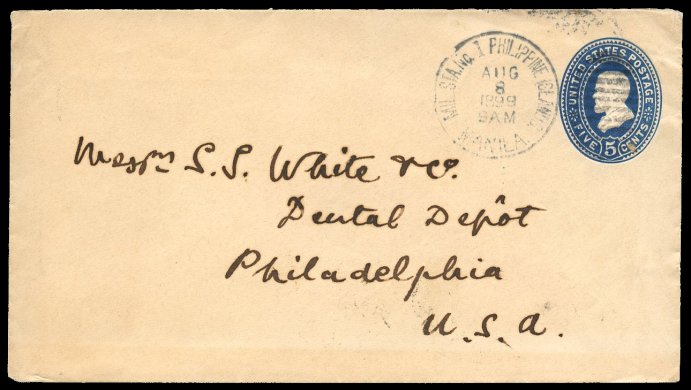 MIL. STA. No. 1 PHILIPPINE ISLANDS
AUG
8
1899
9AM
MANILA
UNITED STATES POSTAGE
FIVE 5 CENTS
Messrs S.S. White & Co.
Dental Depôt
Philadelphia
U.S.A.